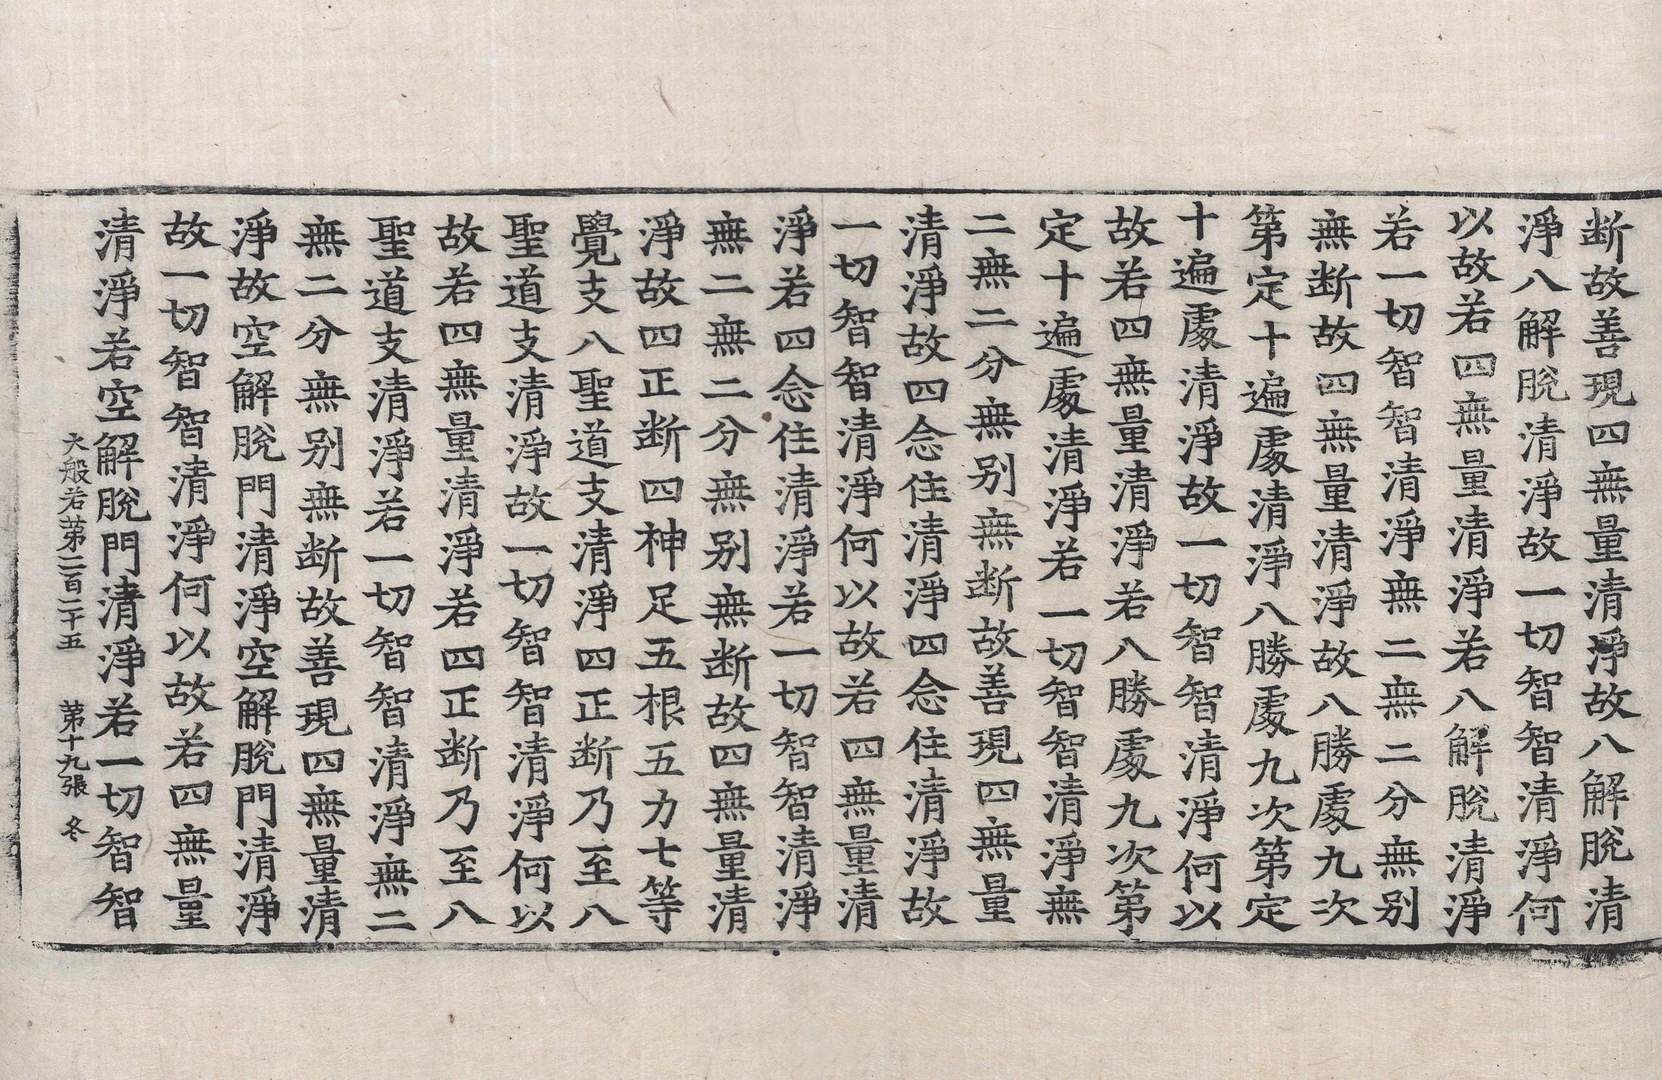 断故善現四無量清淨故八解脫清
淨八解脫清淨故一切智智清淨何
以故若四無量清淨若八解脫清淨
若一切智智清淨無二無二分無別
無断故四無量清淨故八勝處九次
第定十遍處清淨八勝處九次第定
十遍處清淨故一切智智清淨何以
故若四無量清淨若八勝處九次第
定十遍處清淨若一切智智清淨無
二無二分無別無断故善現四無量
清淨故四念住清淨四念住清淨故
一切智智清淨何以故若四無量清
淨若四念住清淨若一切智智清淨
無二無二分無別無断故四無量清
淨故四正断四神足五根五力七等
覺支八聖道支清淨四正断乃至八
聖道支清淨故一切智智清淨何以
故若四無量清淨若四正断乃至八
聖道支清淨若一切智智清淨無二
無二分無別無断故善現四無量清
淨故空解脫門清淨空解脫門清淨
故一切智智清淨何以故若四無量
清淨若空解脫門清淨若一切智智
大般若第二百二十五 第十九張 冬